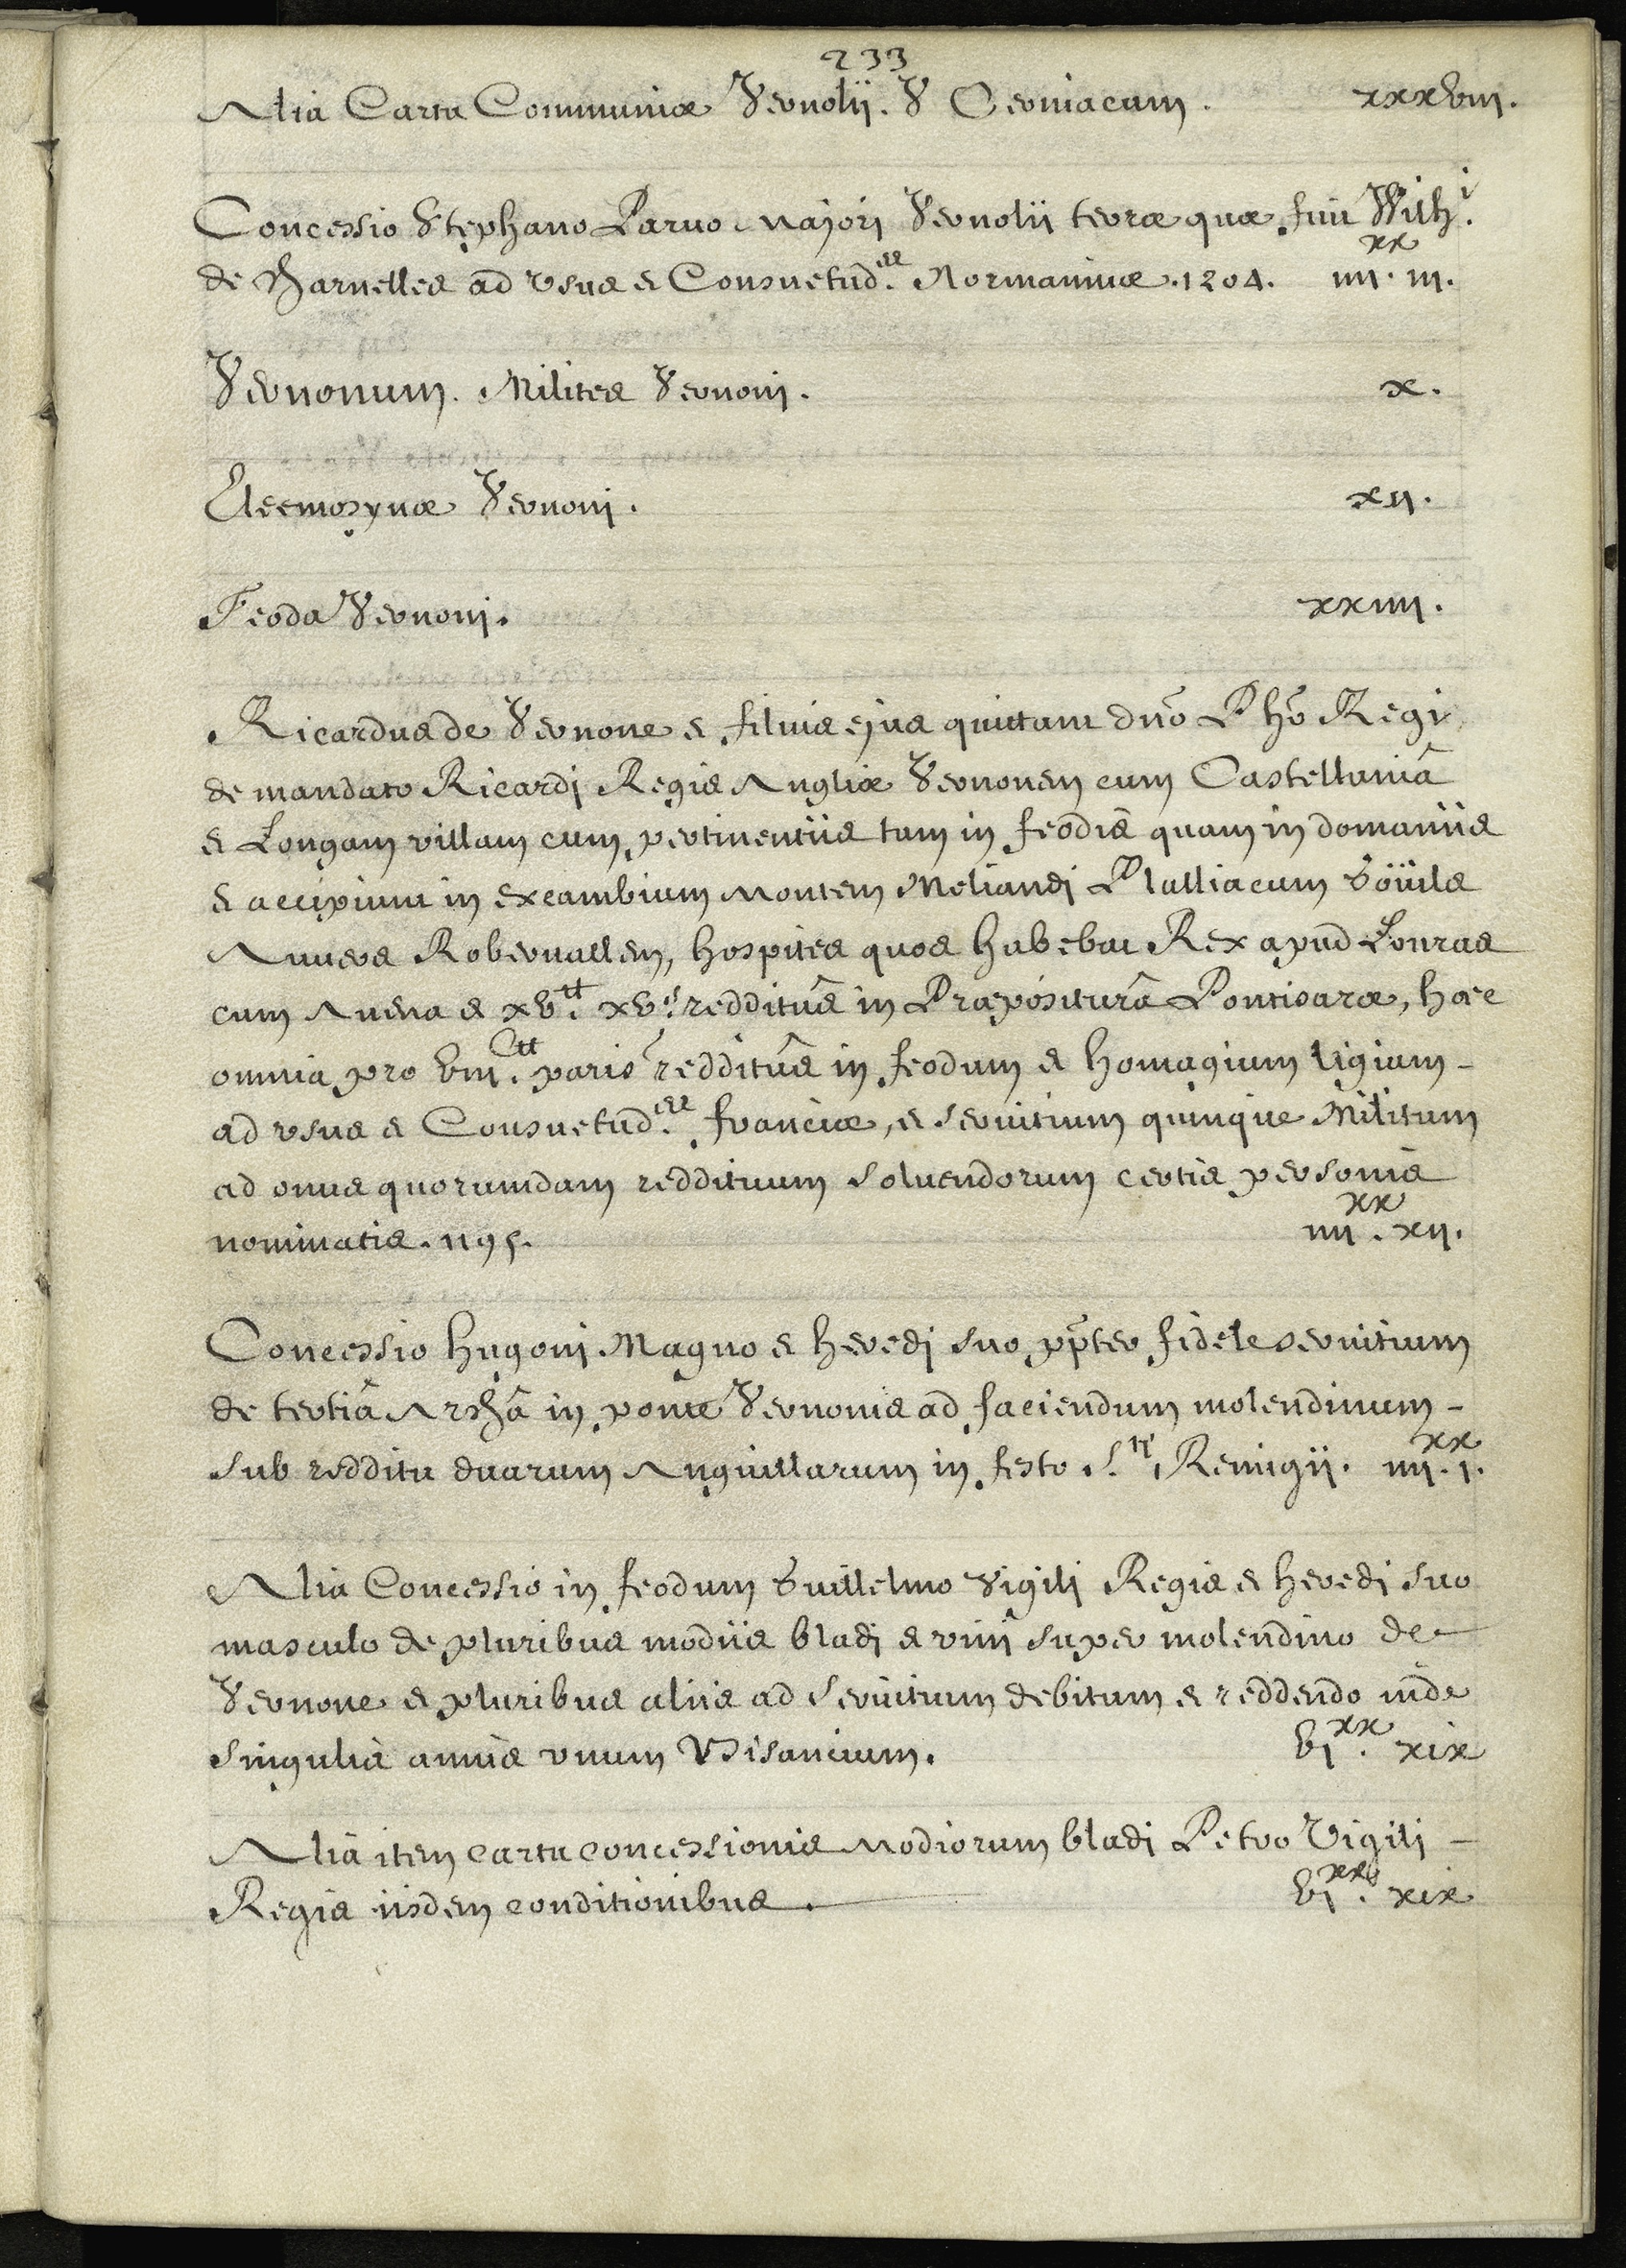 233
Alia Carta Communiæ Vernolij. V Cerniacum. xxxviij.
Concessio Stephano Paruo Majori Vernolii terræ quæ fuit Willi.
de Barnelles ad vsus et Consuetud.es Normanniæ. 1204. iiij.xx iij.
Vernonum. Milites Vernoni. x.
Eleemosynæ Vernoni. xij.
Feoda Vernoni. xxiiij.
Ricardus de Vernone et filius ejus quittant dño Pho Regi
de mandato Ricardi Regis Angliæ Vernonem cum Castellaniâ
et Longam villam cum pertinentiis tam in feodis quam in domaniis
et accipiunt in excambium Montem Meliandi Plalliacum Goüils
Auuers Roberuallem, hospites quos habebat Rex apud Louras
cum Auena et xv.tt xv.s redditûs in Præpositurâ Pontisaræ, hæc
omnia pro viij.Ctt paris redditûs in feodum et homagium ligium -
ad vsus et Consuetud.es franciæ, et seruitium quinque Militum
ad onus quorumdam reddituum soluendorum certis personis
nominatis. 1195. iiij.xx xij.
Concessio hugoni Magno et heredi suo ppter fidele seruitium
de tertiâ Archâ in ponte Vernonis ad faciendum molendinum -
sub redditu duarum Anguillarum in festo S.ti Remigij. iiij.xx j.
Alia Concessio in feodum Guillelmo Vigili Regis et heredi suo
masculo de pluribus modiis bladi et vini super molendino de
Vernone et pluribus aliis ad seruitium debitum et reddendo inde
singulis annis vnum Bisancium. vj.xx xix
Alia item carta concessionis Modiorum bladi Petro Vigili -
Regis iisdem conditionibus. vj.xx xix